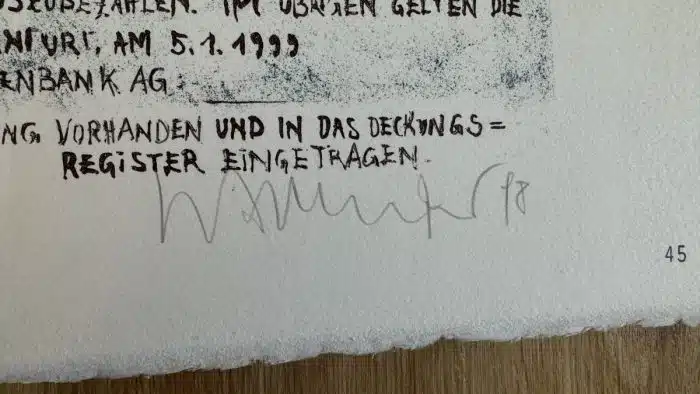 AUSZUBEZAHLEN. IM ÜBRIGEN GELTEN DIE
NKFURT, AM 5.1.1999
ENBANK AG
NG VORHANDEN UND IN DAS DECKUNGS=
REGISTER EINGETRAGEN.
98
45